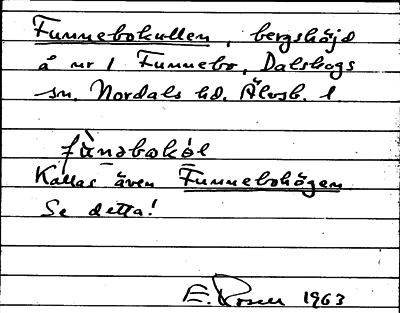 Funnebokullen, bergshöjd
å nr 1 Funnebo, Dalskogs
sn. Nordals hd. Älvsb. l.
fùnəbokə́l
Kallas även Funnebohögen
Se detta!
E. Rosell 1963